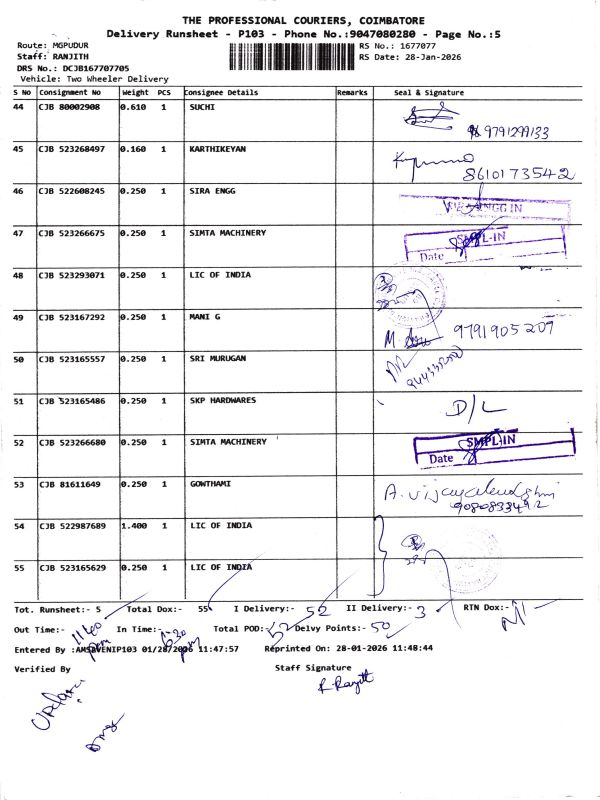 THE PROFESSIONAL COURIERS, COIMBATORE
Delivery Runsheet - P103 - Phone No.:9047080280 - Page No.:5
Route: MGPUDUR RS No.: 1677077
Staff: RANJITH RS Date: 28-Jan-2026
DRS No.: DCJB167707705
Vehicle: Two Wheeler Delivery
S No Consignment No Weight PCS Consignee Details Remarks Seal & Signature
44 CJB 80002908 0.610 1 SUCHI
9791299133
45 CJB 523268497 0.160 1 KARTHIKEYAN
8610173542
46 CJB 522608245 0.250 1 SIRA ENGG
47 CJB 523266675 0.250 1 SIMTA MACHINERY SMPL-IN
Date
48 CJB 523293071 0.250 1 LIC OF INDIA
49 CJB 523167292 0.250 1 MANI G 9791905207
50 CJB 523165557 0.250 1 SRI MURUGAN
51 CJB 523165486 0.250 1 SKP HARDWARES D/L
52 CJB 523266680 0.250 1 SIMTA MACHINERY SMPL-IN
Date
53 CJB 81611649 0.250 1 GOWTHAMI
9080833492
54 CJB 522987689 1.400 1 LIC OF INDIA
55 CJB 523165629 0.250 1 LIC OF INDIA
Tot. Runsheet:- 5 Total Dox:- 55 I Delivery:- 52 II Delivery:- 3 RTN Dox:- Nil
Out Time:- 11 40 pm In Time:- 6-30 pm Total POD:- 52 Delvy Points:- 50
Entered By :AMSAVENIP103 01/28/2026 11:47:57 Reprinted On: 28-01-2026 11:48:44
Verified By Staff Signature